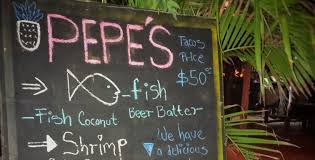 PEPE'S
Tacos
Price
$50
→ -fish
-Fish Coconut Beer Batter-
→ Shrimp
We have
a delicious